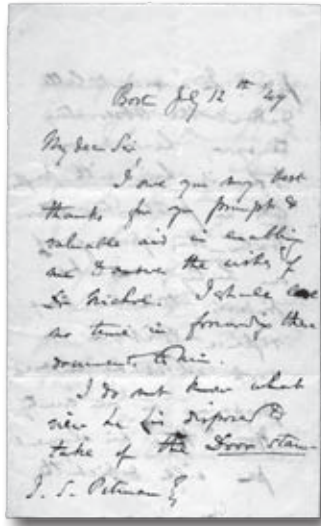 Bost July 12th '49
My dear Sir
I owe you my best
thanks for yr prompt &
valuable aid in enabling
me to answer the wishes of
Dr Nichol. I shall lose
no time in forwardg these
documents to him.
I do not know what
view he is disposed to
take of the Door stan-
J. S. Pitman Esq